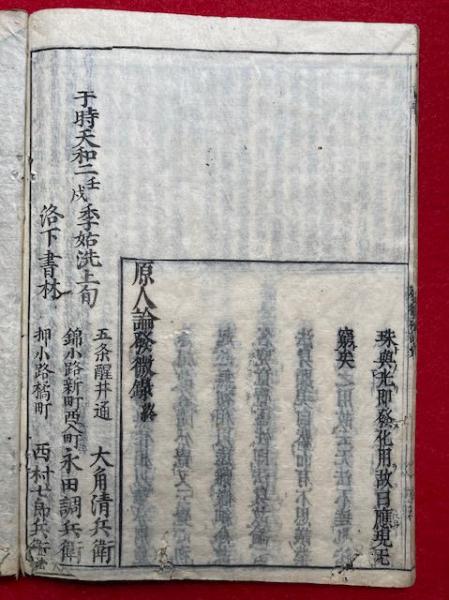 珠與光即發化用故曰應現无
窮矣
原人論發微錄終
于時天和二壬戌季姑洗上旬
洛下書林
五条醒井通 大角清兵衛
錦小路新町西入町 永田調兵衛
押小路橘町 西村七郎兵衛